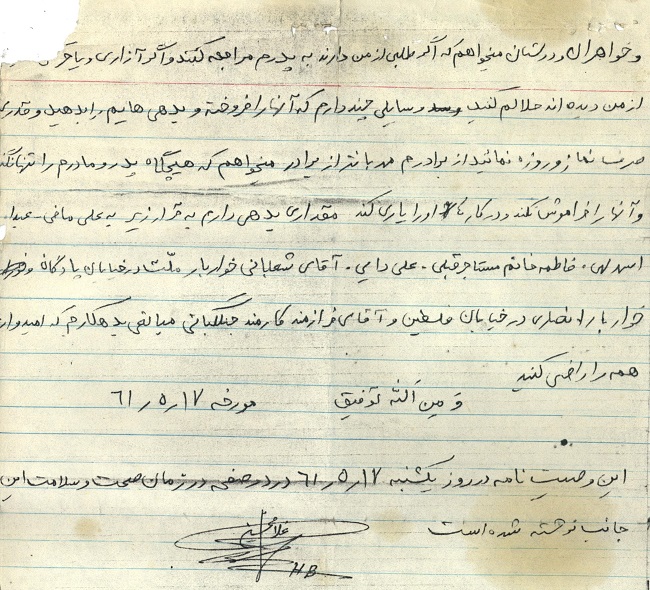 و خواهران و دوستان میخواهم که اگر طلبی از من دارند به پدرم مراجعه کنند و اگر آزاری و یا
از من دیده اند حلالم کنید وسایلی چند دارم که آنها را فروخته و بدهی هایم را بدهید و قدری
صرف نماز و روزه نمائید از برادرم مهربانتر از برادر میخواهم که هیچگاه پدر و مادرم را تنها
و آنها را فراموش نکند و در کارها او را یاری کند مقداری بدهی دارم به قرار زیر به علی مافی -
فاطمه خانم مستاجر قبلی - علی دایی - آقای شعبانی خواربار ملت در خیابان پادگان
خواربار انصاری در خیابان فلسطین و آقای فرازمند کارمند جنگلبانی مبالغی بدهکارم که امیدوارم
همه را راضی کنید
وَ مِن اَلله توفیق مورخه ۶۱/۵/۱۷
این وصیت نامه در روز یکشنبه ۶۱/۵/۱۷ در دو صفحه در زمان صحت و سلامت این
جانب نوشته شده است
HB